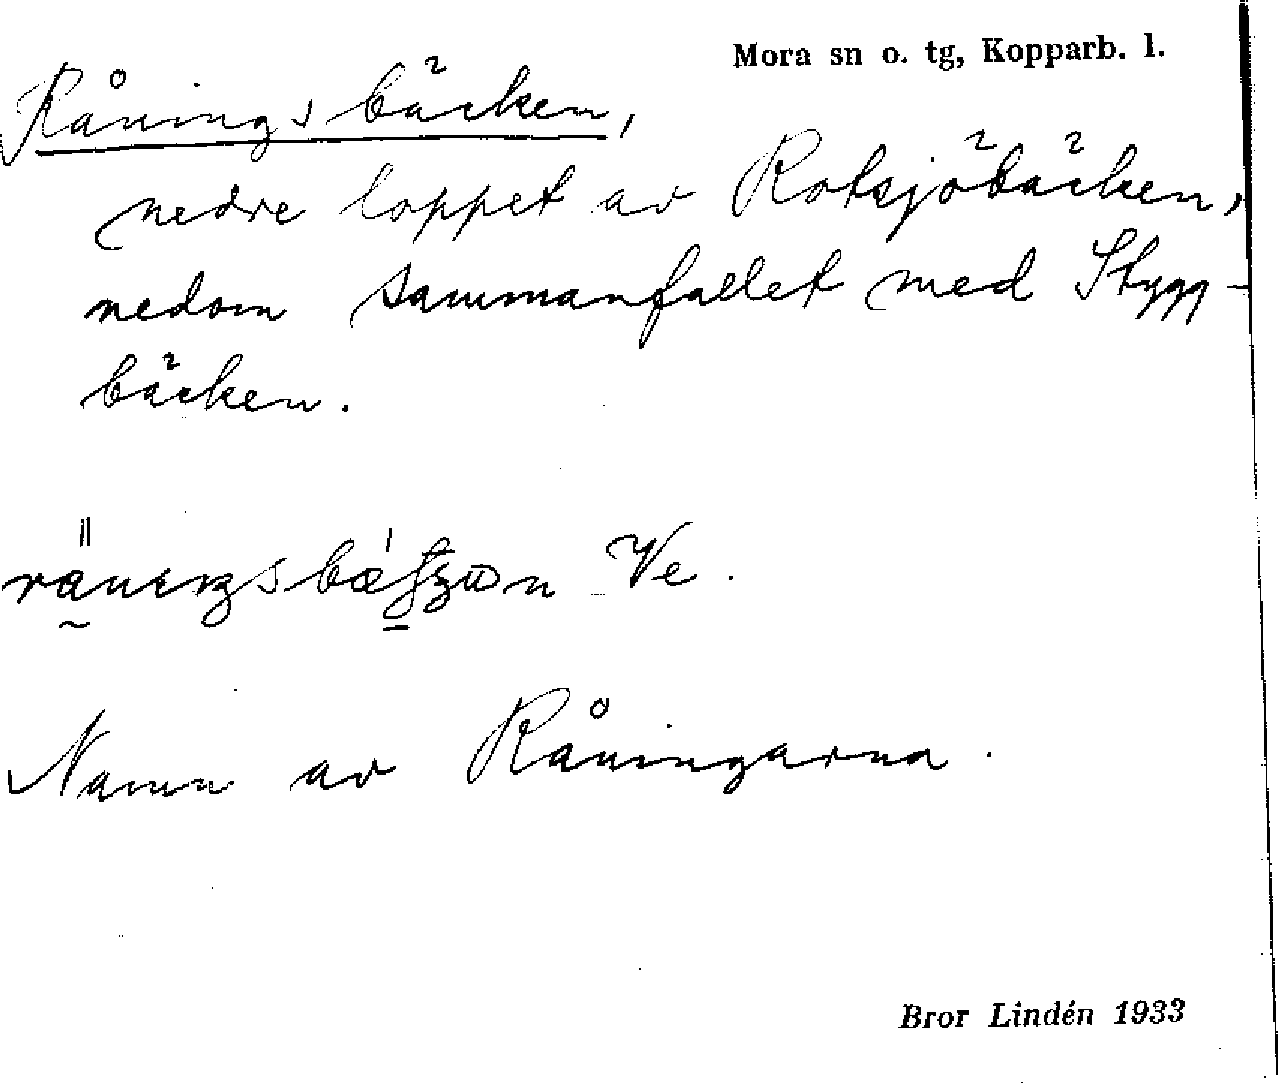 Mora sn o. tg, Kopparb. l.
Råningsbäcken,
nedre loppet av Rotsjöbäcken,
nedom sammanfallet med Stygg-
bäcken.
Ve.
Namn av Råningarna.
Bror Lindén 1933